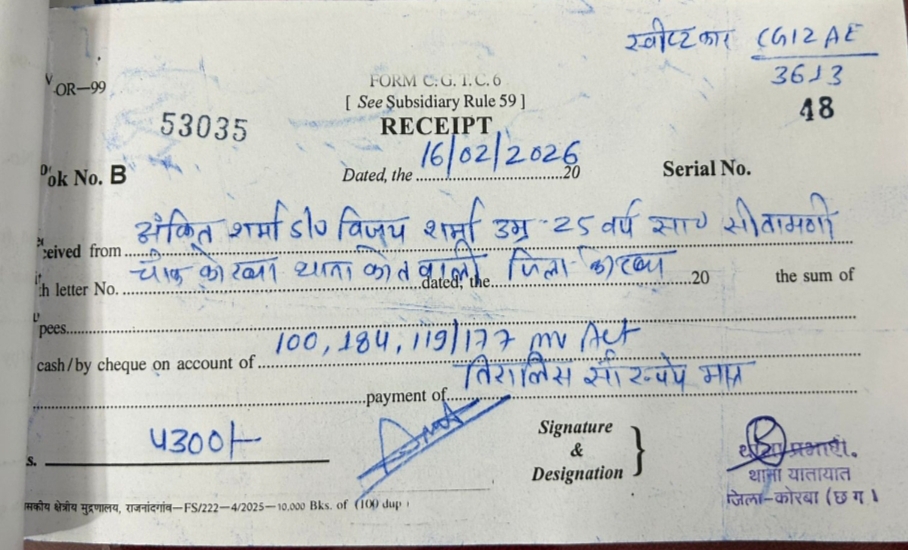 स्वीटकार CG12AE
3613
V-OR—99
FORM C.G.T.C. 6
[ See Subsidiary Rule 59 ]
48
53035
RECEIPT
ok No. B
Dated, the 16/02/2026 20
Serial No.
ceived from अंकित शर्मा S/o विजय शर्मा उम्र 25 वर्ष साO सीतामणी
चौक कोरबा थाना कोतवाली जिला कोरबा
h letter No. dated, the 20 the sum of
pees
cash/by cheque on account of 100, 184, 119/177 mv Act
payment of तिरालिस सौ रूपये मात्र
s. 4300/-
Signature
&
Designation
थाना प्रभारी.
थाना यातायात
जिला-कोरबा (छ ग )
सकीय क्षेत्रीय मुद्रणालय, राजनांदगांव—FS/222—4/2025—10,000 Bks. of (100 dup